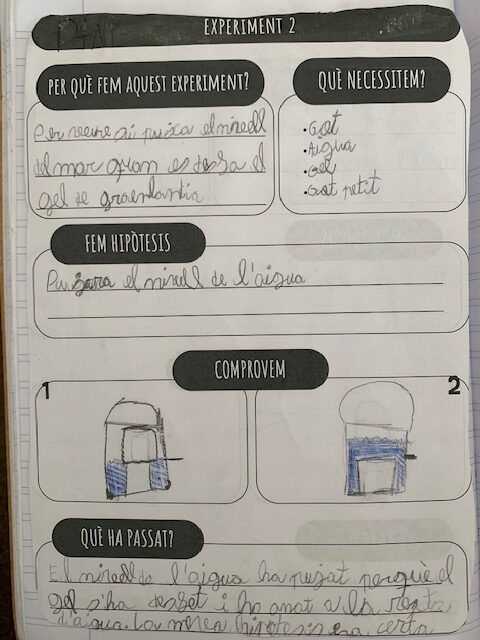 EXPERIMENT 2
PER QUÈ FEM AQUEST EXPERIMENT?
Per veure si puixa el nivell
del mar quan es desfa el
gel de groenlantia
QUÈ NECESSITEM?
•Got
•Aigua
•Gel
•Got petit
FEM HIPÒTESIS
Puxara el nivell de l'aigua
COMPROVEM
1
2
QUÈ HA PASSAT?
El nivell de l'aigua ha pujat perquè el
gel s'ha desfet i ha anat a la resta
d'aigua. La meva hipotesis era certa